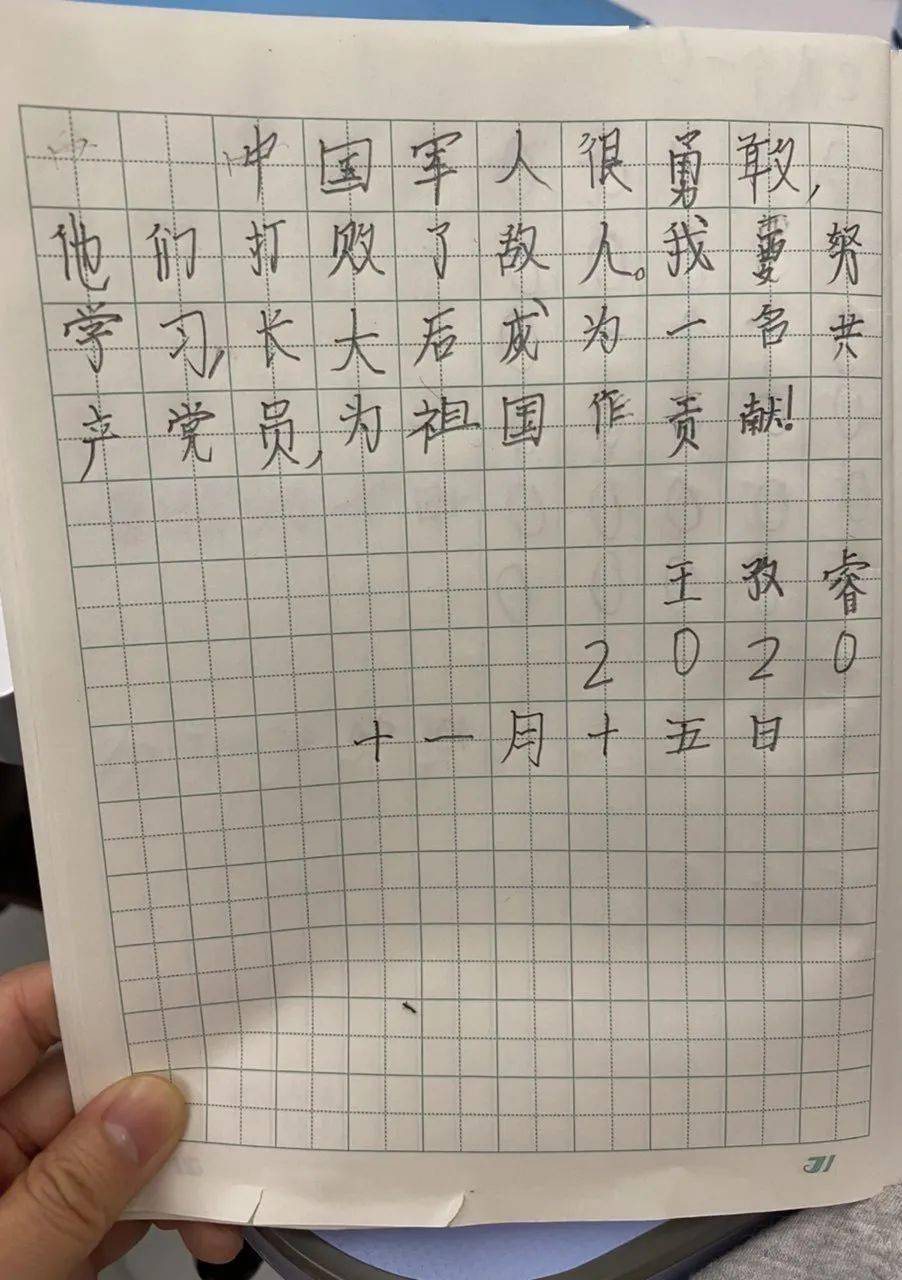 中国军人很勇敢，
他们打败了敌人。我要努
学习，长大后成为一名共
产党员，为祖国作贡献！
王孜睿
2020
十一月十五日